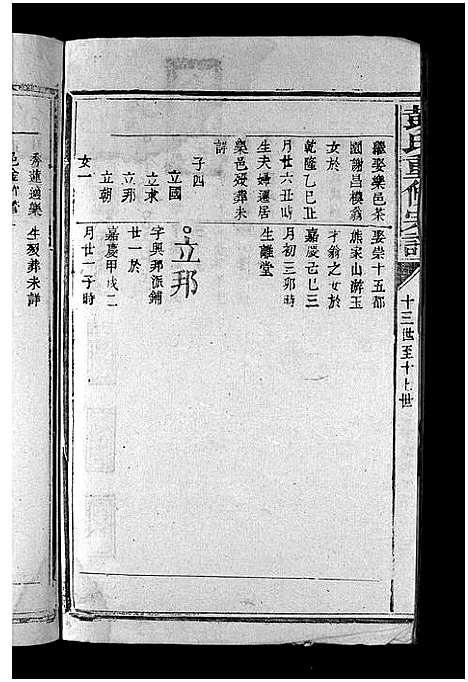 黃氏重修宗譜
十三世至十七世
繼娶樂邑茶
園謝昌模翁
女於
乾隆乙巳正
月廿六丑時
生夫婦遷居
樂邑歿葬未
詳
子四
立國
立東
立邦
立朝
女一
娶崇十五都
熊家山游玉
才翁之女於
嘉慶己巳三
月初三卯時
生離堂
立邦
字興邦派鋪
廿一於
嘉慶甲戌二
月廿二子時
秀蓮適樂
生歿葬未詳